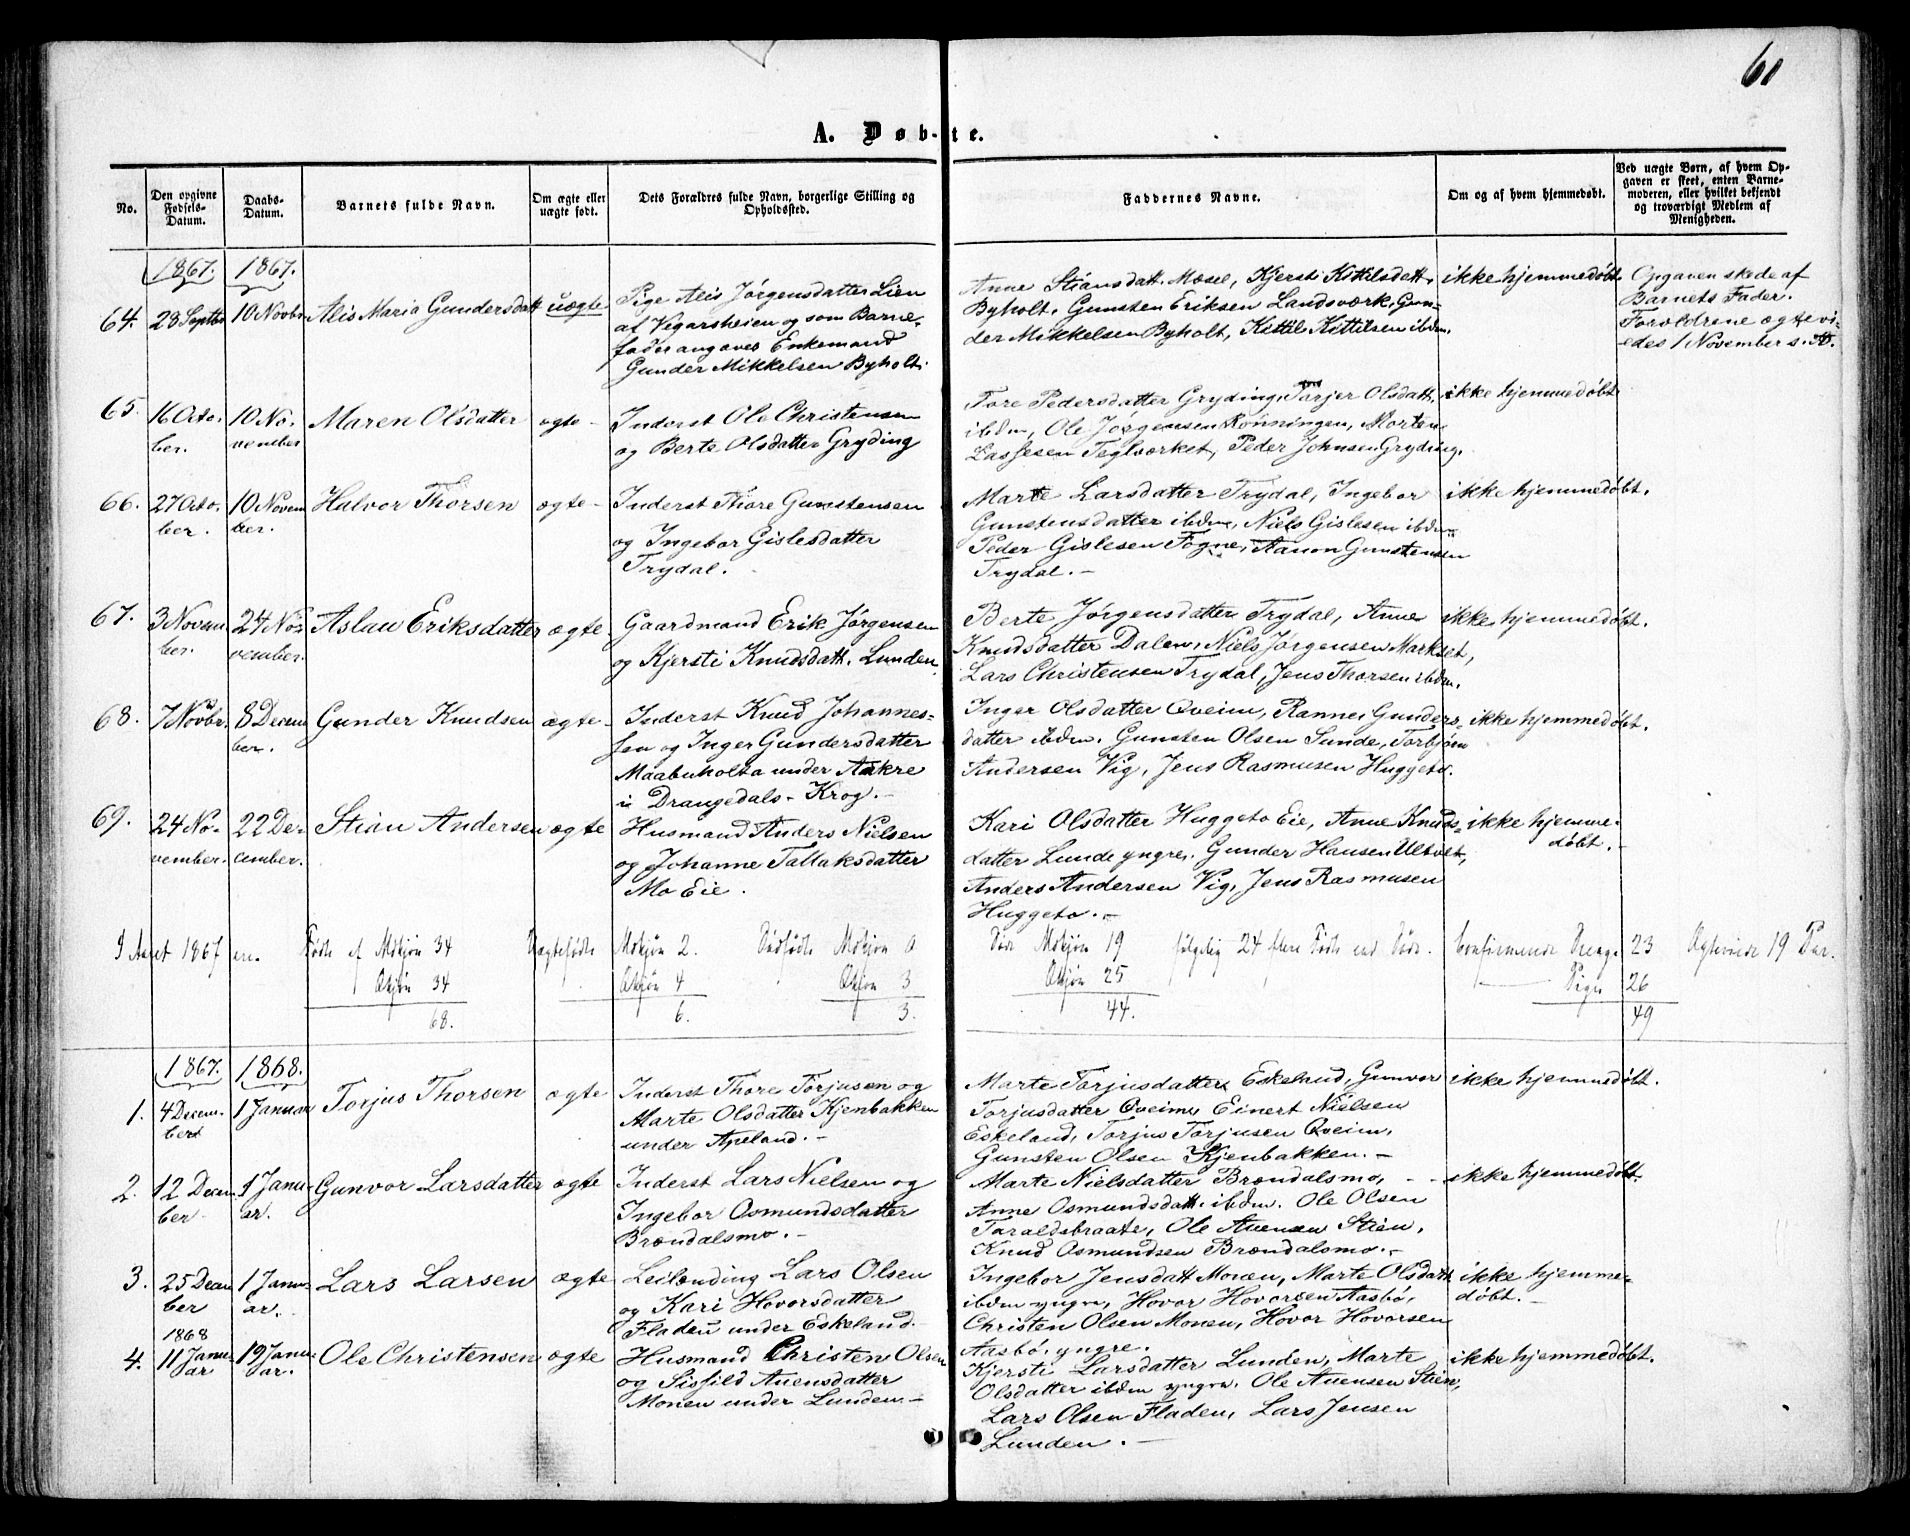 60
A. Døb-te.
No.
Den opgivne Fødsels-Datum.
Daabs-Datum.
Barnets fulde Navn.
Om ægte eller uægte født.
Dets Forældres fulde Navn, borgerlige Stilling og Opholdssted.
Faddernes Navne.
Om og af hvem hjemmedøbt.
Ved uægte Børn, af hvem Opgaven er skeet, enten Barnemoderen, eller hvilket bekjendt og troværdigt Medlem af Menigheden.
1867. 1867.
64. 23 Septbr 10 Novbr Alis Maria Gundersdatt uægte
Pige Alis Jørgensdatter Lien
af Vegarsheien og som Barne-
fader angaves Enkemand
Gunder Mikkelsen Byholt.
Anne Stiansdatt. Mæsel, Kjersti Kittilsdatt.
Byholt, Gunsten Eriksen Landsværk, Gun-
der Mikkelsen Byholt, Kittil Kittilsen ibdm.
ikke hjemmedøbt
Opgaven skede af
Barnets Fader.
Forældrene ægtevi-
edes 1 November s. A.
65. 16 Octo- 10 No- Maren Olsdatter ægte
ber. vember
Inderst Ole Christensen
og Berte Olsdatter Gryding
Tore Pedersdatter Gryding, Torjer Olsdatt.
ibdm, Ole Jørgensen Rønningen, Morten
Lassesen Teglværket, Peder Johnsen Gryding.
ikke hjemmedøbt
66. 27 Octo- 10 Novem Halvor Thorsen ægte-
ber. ber.
Inderst Thore Gunstensen
og Ingebor Gislesdatter
Trydal.
Marte Larsdatter Trydal, Ingebor
Gunstensdatter ibdm, Niels Gislesen ibdm
Peder Gislesen Fogne, Aanon Gunstensen
Trydal.-
ikke hjemmedøbt.
67. 3 Novem 24 No- Aslau Eriksdatter ægte
ber. vember.
Gaardmand Erik Jørgensen
og Kjersti Knudsdatt. Lunden.
Berte Jørgensdatter Trydal, Anne
Knudsdatter Dalen, Niels Jørgensen Markset,
Lars Christensen Trydal, Jens Thorsen ibdm.
ikke hjemmedøbt.
68. 7 Novbr. 8 Decem Gunder Knudsen ægte-
ber.
Inderst Knud Johannes-
sen og Inger Gundersdatter
Maabuholta under Askre
i Drangedals-Krog.-
Inger Olsdatter Qveim, Ranne Gunders-
datter ibdm. Gunsten Olsen Sunde, Torbjørn
Andersen Vig, Jens Rasmusen Huggeto.
ikke hjemmedøbt.
69. 24 No- 22 De- Stian Andersen ægte
vember. cember.
Husmand Anders Nielsen
og Johanne Tallaksdatter
Mo Eie.
Kari Olsdatter Huggeto Eie, Anne Knuds-
datter Lunde yngre, Gunder Hansen Ultvet,
Anders Andersen Vig, Jens Rasmusen
Huggeto.-
ikke hjemme-
døbt.-
I Aaret 1867 ere Fødte af Mskjøn 34 Uægtefødte Mskjøn 2. Dødfødte Mskjøn 0 Døde Mskjøn 19 følgelig 24 flere Fødte end Døde. Confirmerede Drenge 23 Ægteviede 19 Par.
Qkjøn 34 Qkjøn 4 Qkjøn 3 Qkjøn 25 Piger 26
68. 6. 3. 44. 49
1867. 1868.
1. 4 Decem- 1 Januar Torjus Thorsen ægte
ber
Inderst Thore Torjusen og
Marte Olsdatter Kjenbakken
under Apeland.-
Marte Torjusdatter Eskeland, Gunvor
Torjusdatter Qveim, Einert Nielsen
Eskeland, Torjus Torjusen Qveim,
Gunsten Olsen Kjenbakken.-
ikke hjemmedøbt.
2. 12 Decem 1 Janu- Gunvor Larsdatter ægte
ber ar.
Inderst Lars Nielsen og
Ingebor Osmundsdatter
Brændalsmo.-
Marte Nielsdatter Brændalsmo, - -
Anne Osmundsdatt. ibdm. Ole Olsen
Taraldsbraate, Ole Auensen Stien,
Knud Osmundsen Brændalsmo.-
ikke hjemmedøbt.
3. 25 Decem 1 Janu- Lars Larsen ægte
ber ar.
Leilænding Lars Olsen
og Kari Hovorsdatter
Fladen under Eskeland.
Ingebor Jensdatt Monen, Marte Olsdatt
ibdm yngre, Hovor Hovorsen Aasbø,
Christen Olsen Monen, Hovor Hovorsen
Aasbø, yngre.
ikke hjemme-
døbt.-
1868
4. 11 Janu- 19 Janu- Ole Christensen ægte
ar ar.
Husmand Christen Olsen
og Sissild Auensdatter
Monen under Lunden.-
Kjersti Larsdatter Lunden, Marte
Olsdatter ibdm yngre, Ole Auensen Stien,
Lars Olsen Fladen, Lars Jensen
Lunden.-
ikke hjemmedøbt.